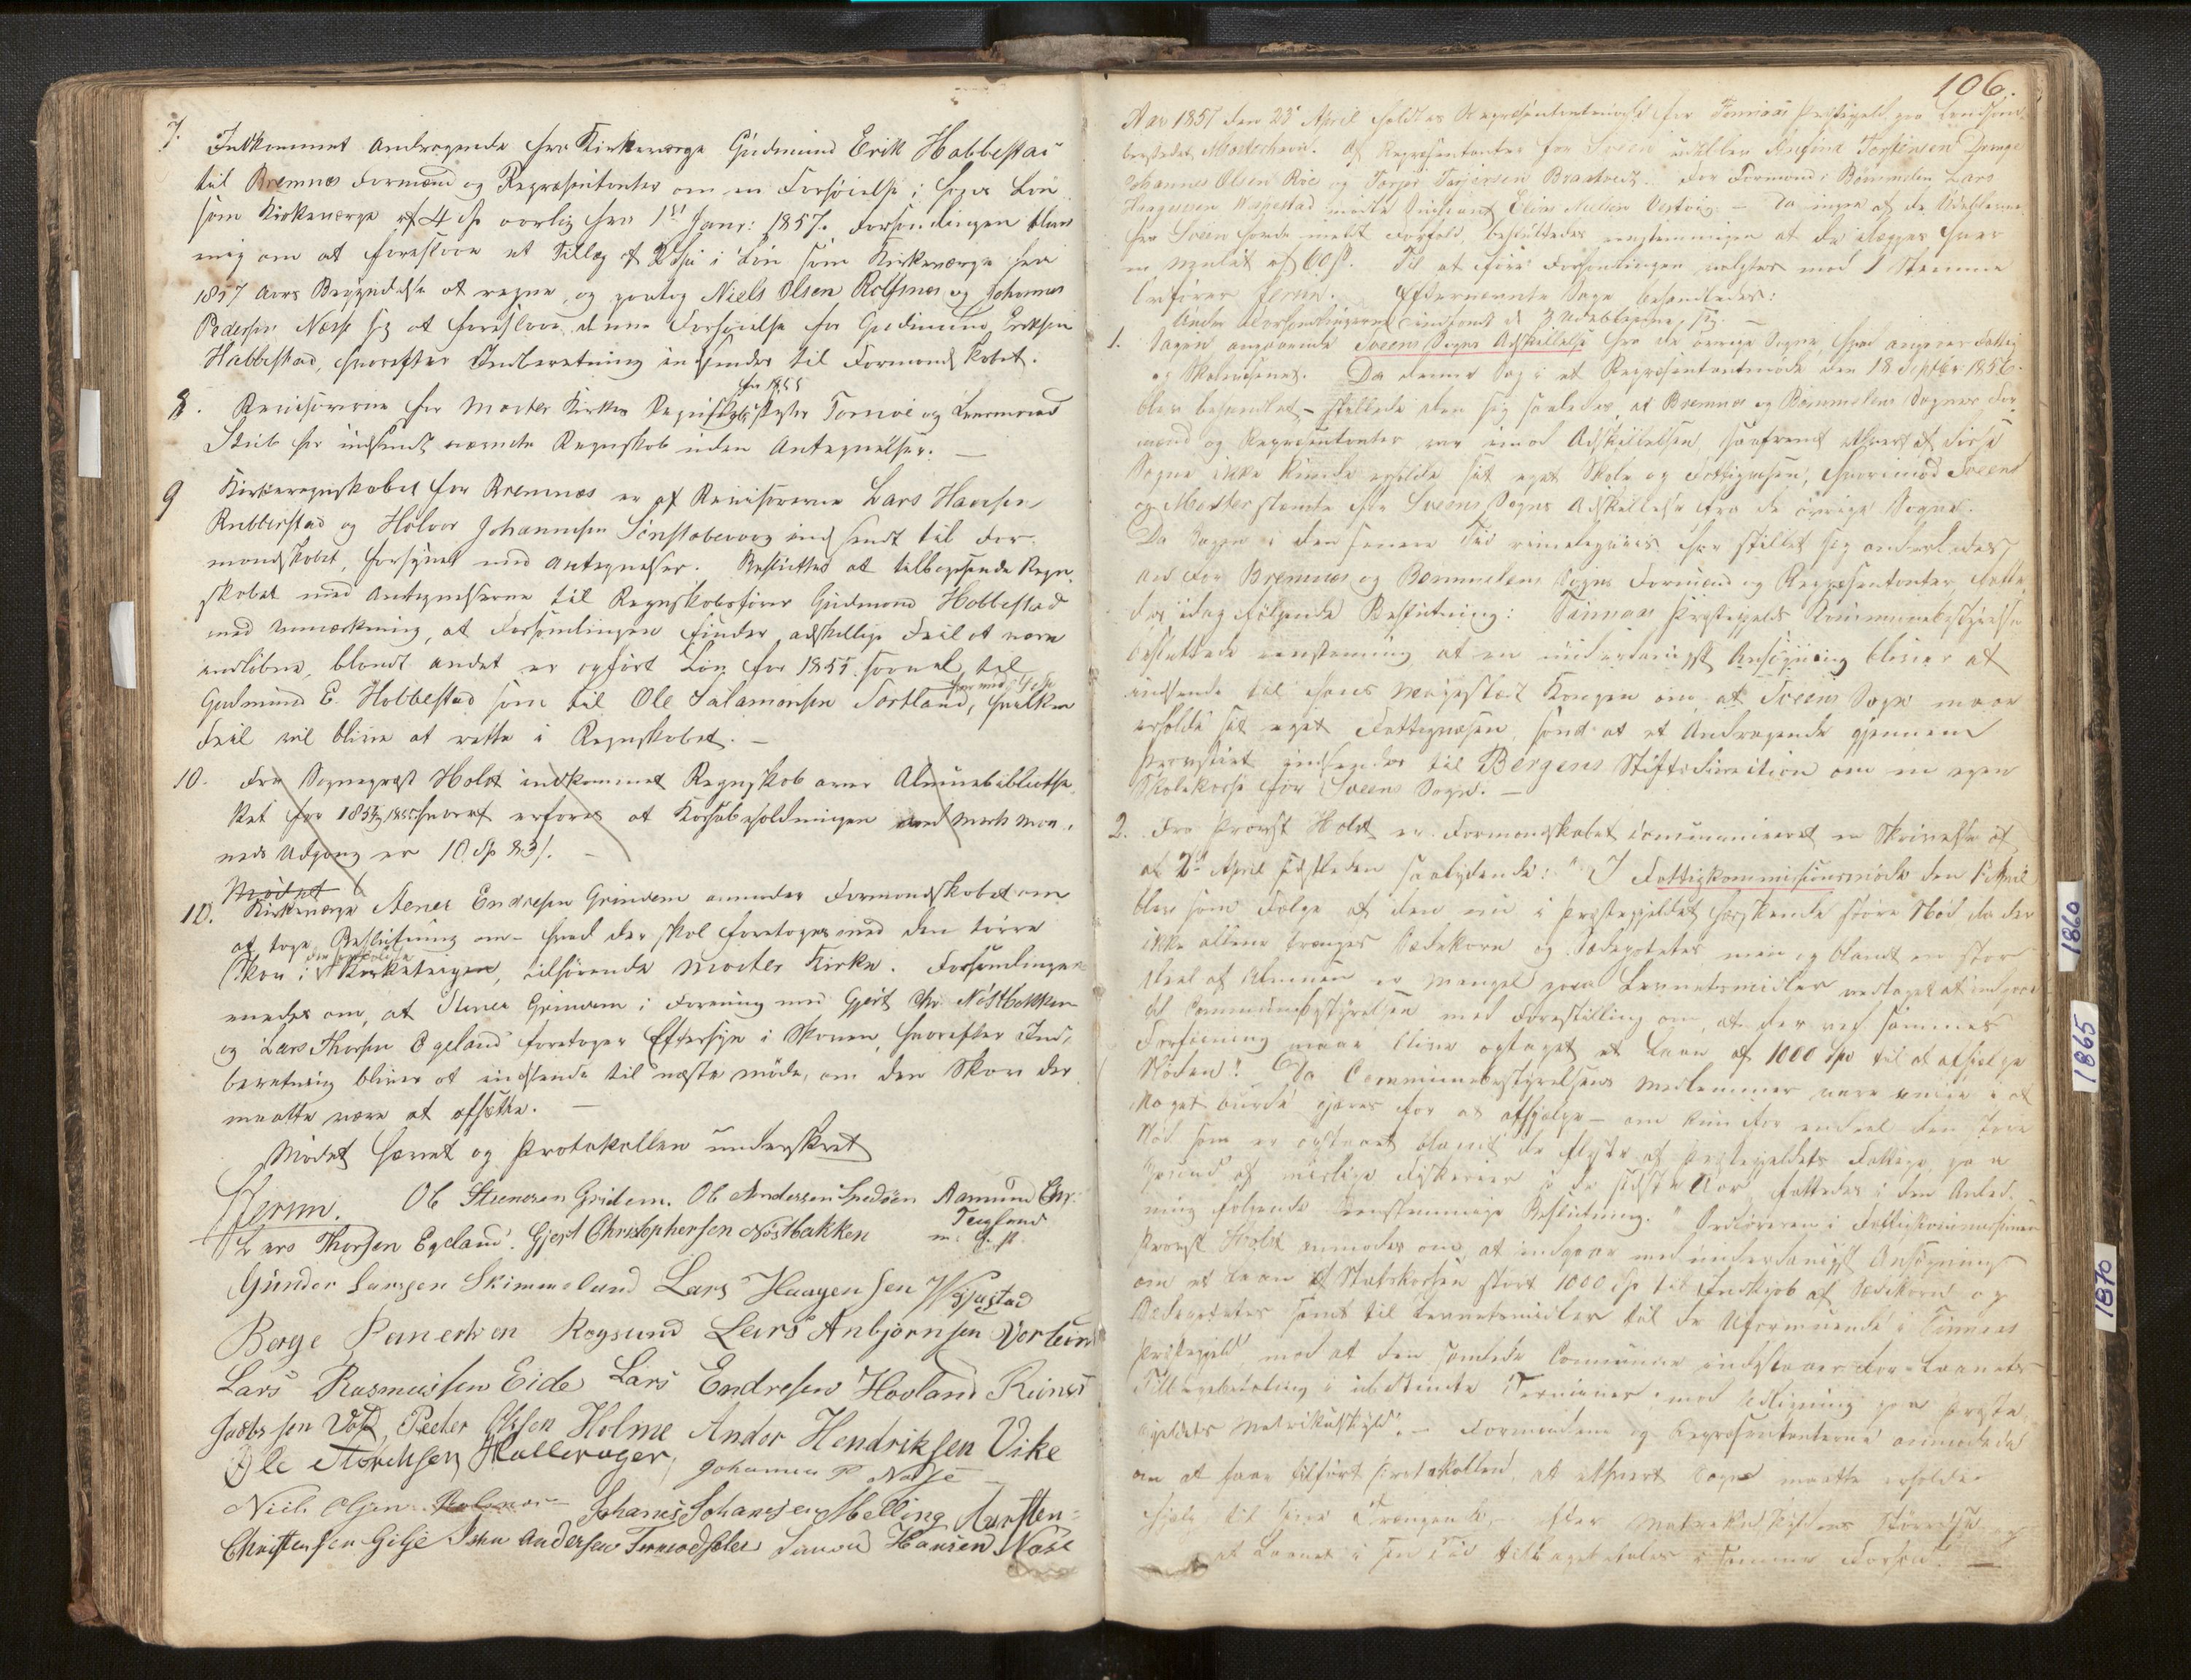 7. Indkommet Andragende fra Kirkeværge Gudmund Erik Habbestad
til Bremnes Formænd og Repræsentanter om en Forhøielse i hans Løn
som Kirkeværge af 4 Sp aarlig fra 1ste Janr: 1857. Forsamlingen blev
enig om at foreslaae et Tillæg af 2 Spd i Løn som Kirkeværge fra
1857 Aars Begyndelse at regne, og paatog Niels Olsen Rolfsnes og Johannes
Pedersen Næsse sig at foreslaae denne Forhøielse for Gudmund Eriksen
Habbestad, hvorefter Indberetning indsendes til Formandskabet.
8. Revisorerne for Moster Kirkes Regnskab for 1855 Tornøe og Lensmand
Stub har indsendt nævnte Regnskab uden Antegnelser. —
9 Kirkeregnskabet for Bremnes er af Revisorerne Lars Haavesen
Rubbestad og Halvor Johannesen Sønstabøvaag indsendt til For-
mandskabet, forsynet med Antegnelser. Besluttet at tilbagesende Regn-
skabet med Antegnelserne til Regnskabsfører Gudmund Hobbestad
med Anmærkning, at Forsamlingen finder adskillige Feil at være
indløbne, blandt andet er opført Løn for 1855 saavel til
Gudmund E. Hobbestad som til Ole Salamonsen Sortland, hvilken
Feil vil blive at rette i Regnskabet. —
10. Fra Sognepræst Holdt indkommet Regnskab over Almuebibliothe-
ket for 1854/1855 hvoraf erfares at Kassabeholdningen ved Marts Maa-
neds Udgang er 10 Sp 83 s. —
Mødet
10. Kirkeværge Stener Endresen Grindem anmoder Formandskabet om
at tage Beslutning om hvad der skal foretages med den tørre
Skov i Kirketeigen, tilhørende Moster Kirke. Forsamlingen
enedes om, at Stener Grindem i Forening med Gjert Chr. Nøstbakken
og Lars Thorsen Egeland foretager Eftersyn i Skoven, hvorefter Ind-
beretning bliver at indsende til næste Møde, om den Skov der
maatte være at afsætte. —
Mødet hævet og Protokollen underskrevet
Jersin. Ole Steinersen Gridem. Ole Andersen Inedøen Aamund Chr:
Lars Thorsen Egeland. Gjert Christophersen Nøstbakken Teigland
m. f. P.
Gunder Larsen Skimmeland Lars Haagensen Wespestad
Berge Rogsund Lars Anbjørnsen Vorland
Lars Rasmussen Eide Lars Endresen Hovland Rasmus
Jacobsen Peder Olssen Holme Andor Hendriksen Vike
Ole Størchsen Hallerager, Johannes P Næsse
Niels Olsen Rolfsnes Johanes Johanesen Melling Karsten
Christensen Gilje Andersen Hansen Næse
106.
Aar 1857 den 23de April holdtes Repræsentantmøde for Finnaas Præstegjeld paa Tingstedet
Mosterhavn. Af Repræsentanter for Sveen udebleve Torstensen
Johannes Olsen Røe og Torger Torgersen Braatvedt. For Formand i Bømmelen Lars
Haagensen Wespestad mødte Suppleant Elias Nielsen Vestvig. — Da ingen af de Udeblevne
fra Sveen havde meldt Forfald, besluttedes eenstemmigen at de ilægges hver
en Mulct af 60 s. Til at føre Forhandlingen valgtes med 1 Stemme
Ordfører Jersin. Efternævnte Sager behandledes:
1. Sagen angaaende Sveens Sogns Adskillelse fra de øvrige Sogne, hvad angaaer Fattig-
og Skolevæsenet. Da denne Sag i et Repræsentantmøde den 18 Septbr 1856
blev behandlet, stillede den sig saaledes, at Bremnes og Bømmelens Sognes For-
mænd og Repræsentanter var imod Adskillelsen, saafremt ethvert af disse
Sogne ikke kunde erholde sit eget Skole og Fattigvæsen, hvorimod Sveens
og Moster stemte for Sveens Sogns Adskillelse fra de øvrige Sogne.
Da Sagen i den senere Tid rimeligviis har stillet sig anderledes
for Bremnes og Bømmelens Sogns Formænd og Repræsentanter, fatte-
des idag følgende Beslutning: Finnaas Præstegjelds Kommunebestyrelse
besluttede eenstemmig at en underdanigst Ansøgning bliver at
indsende til Hans Majestæt Kongen om, at Sveens Sogn maa
erholde sit eget Fattigvæsen, samt at et Andragende gjennem
Provstiet indsendes til Bergens Stiftsdirection om en egen
Skolekasse for Sveens Sogn. —
2. Fra Provst Holdt er Formandskabet communiceret en Skrivelse af
2den April sidstleden saalydende: "I Fattigkommissionsmøde den 1ste April
blev som Følge af den nu i Præstegjeldet herskende store Nød, da der
ikke allene trænges Sædekorn og Sædepoteter, men og blandt en stor
Deel af Almuen er Mangel paa Levnetsmidler vedtaget at indgaae
til Communebestyrelsen med Forestilling om, at der ved sammes
Forføining maa blive optaget et Laan af 1000 Spd til at afhjelpe
Nøden." Da Communebestyrelsens Medlemmer vare enige i at
Noget burde gjøres for at afhjælpe — om kun for endeel den store
Nød som er opstaaet blandt de fleste af Præstegjeldets Fattige, paa
Grund af mislige Fiskerier i de sidste Aar, fattedes i den Anled-
ning følgende eenstemmige Beslutning: "Ordføreren i Fattigkommissionen
Provst Holdt anmodes om, at indgaae med underdanigst Ansøgning
om et Laan af Statskassen stort 1000 Spd til Indkjøb af Sædekorn og
Sædepoteter samt til Levnetsmidler til de Uformuende i Finnaas
Præstegjeld, mod at den samlede Commune indestaaer for Laanets
Tilbagebetaling i bestemte Terminer mod Udligning paa Præste-
gjeldets Matrikulskyld". — Formændene og Repræsentanterne anmodede
om at faae tilført Protokollen, at ethvert Sogn maatte erholde
Hjelp til sine Trængende, efter Matrikulskyldens Størrelse, og
at Laanet i sin Tid tilbagebetales i samme Forhold. —
1860
1865
1870